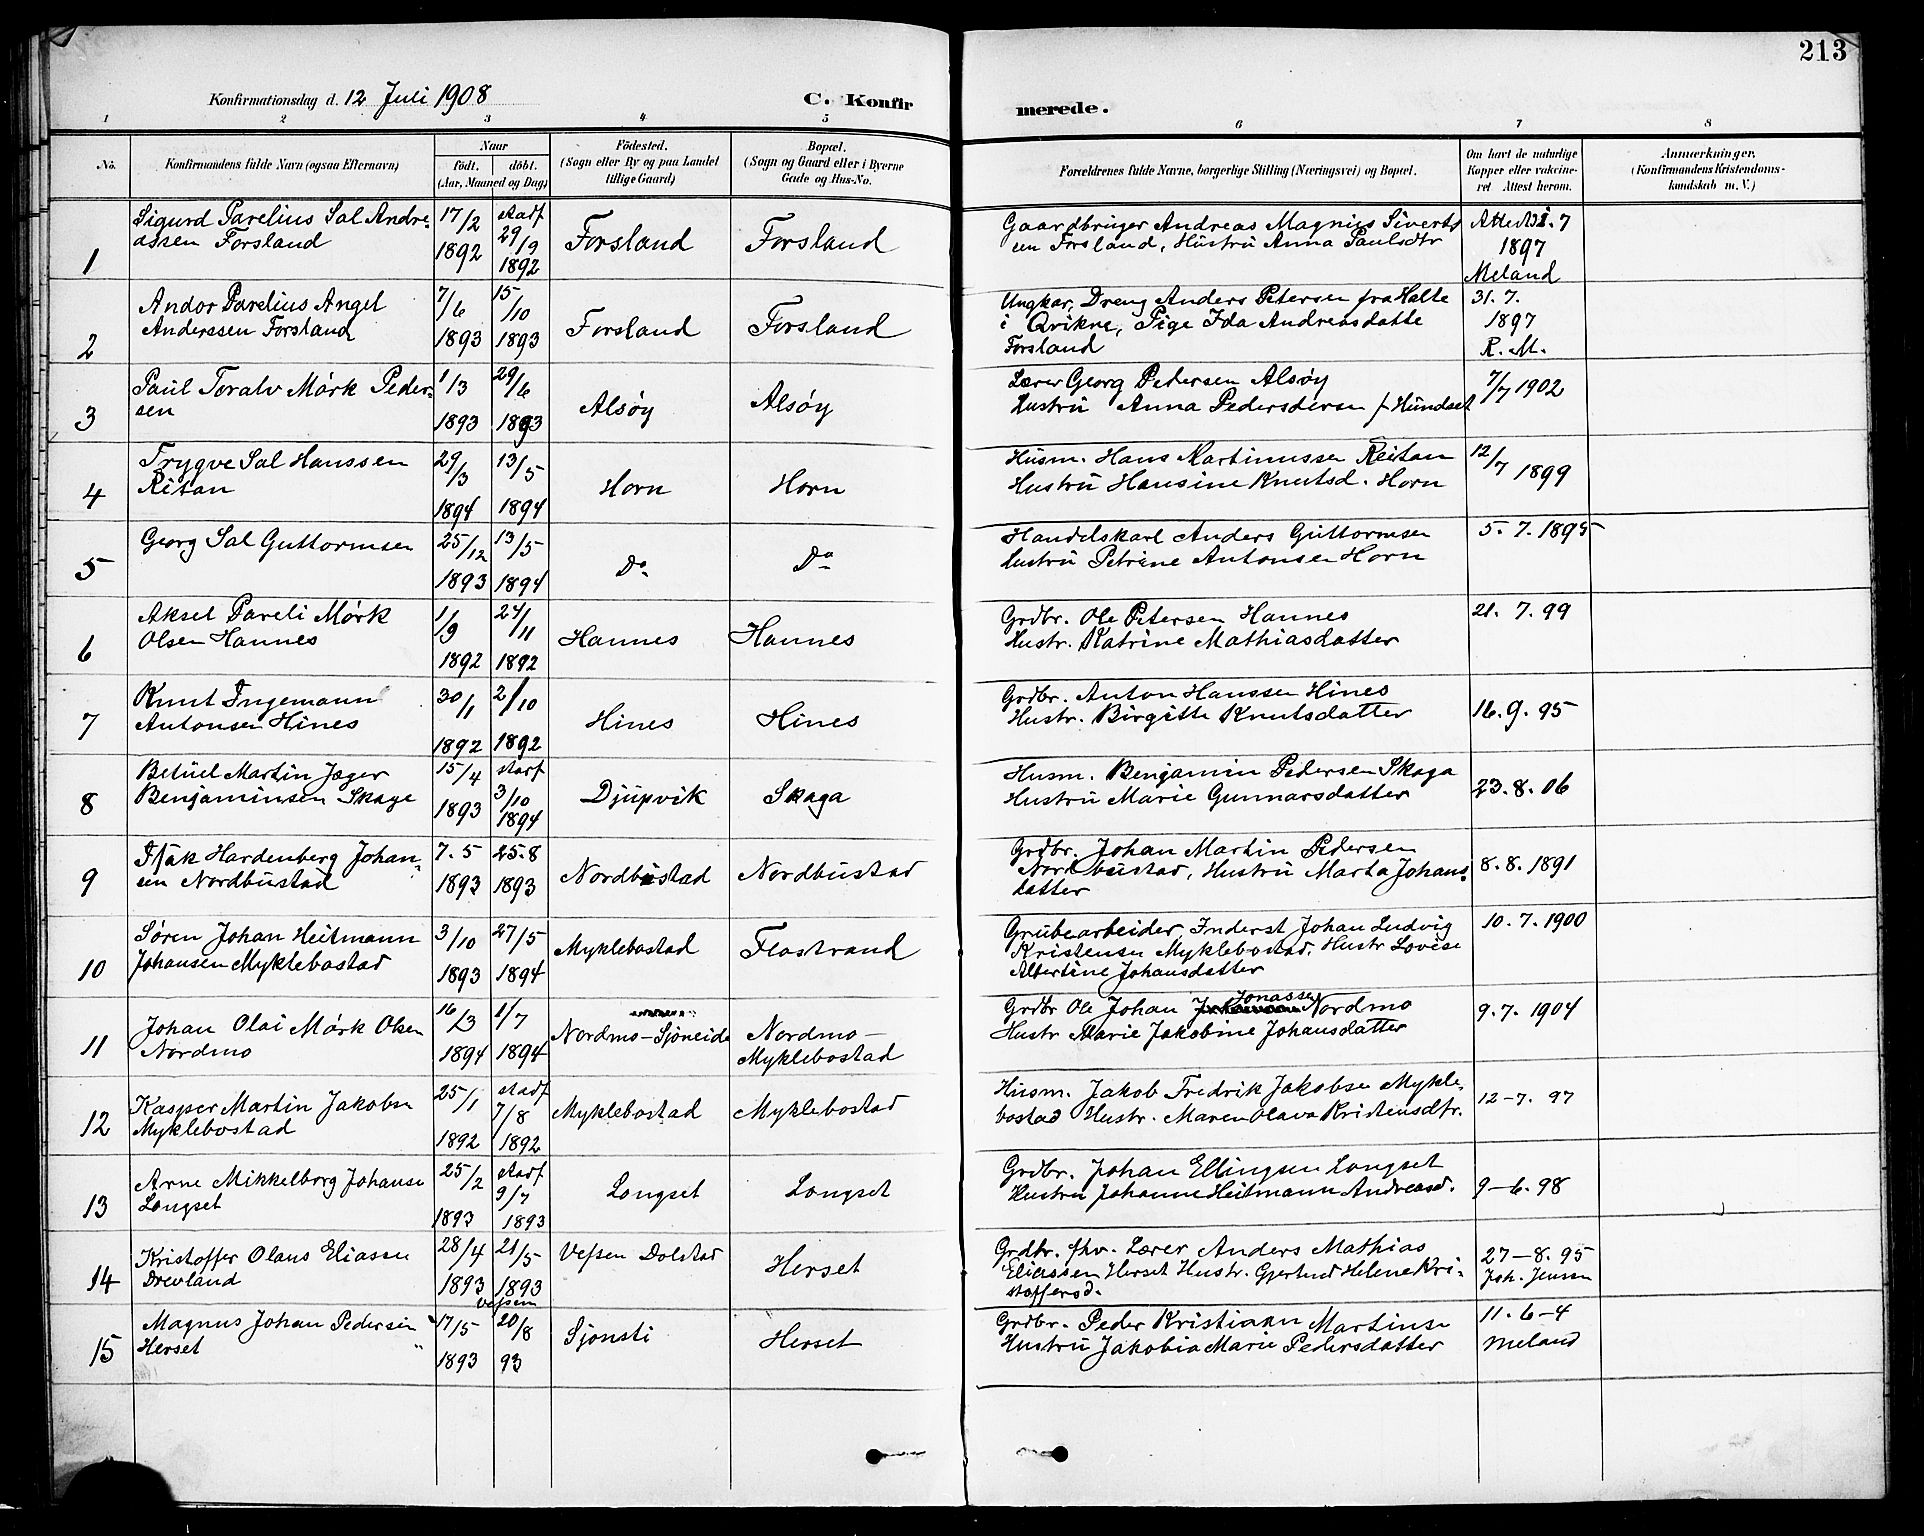 213
Konfirmationsdag d. 12 Juli 1908 C. Konfir merede.
1 2 3 4 5 6 7 8
No. Konfirmandens fulde Navn (ogsaa Efternavn) Naar født. døbt. (Aar, Maaned og Dag) Fødested. (Sogn eller By og paa Landet tillige Gaard) Bopæl. (Sogn og Gaard eller i Byerne Gade og Hus-No. Forældrenes fulde Navne, borgerlige Stilling (Næringsvei) og Bopæl. Om havt de naturlige Kopper eller vakcineret Attest herom. Anmærkninger. (Konfirmandens Kristendomskundskab m. V.)
Sigurd Parelius Sal Andre- 17/2 stadf Gaardbruger Andreas Magnus Siverts
assen Forsland 29/9 Forsland Forsland sen Forsland, Hustru Anna Paulsdtr 1897
1 1892 1892 Meland
Andor Parelius Angel 7/6 15/10 Ungkar, Dreng Anders Petersen fra Halte 31. 7.
Anderssen Forsland Forsland Forsland i Qvikne, Pige Ida Andreasdatte 1897
2 1893 1893 Forsland R. M.
Paul Toralv Mørk Peder- 1/3 29/6 Lærer Georg Pedersen Alsøy 7/7 1902
sen Alsøy Alsøy Hustru Anna Pedersdersen f Hundset
3 1893 1893
Trygve Sal Hanssen 29/3 13/5 Husm. Hans Martinussen Reitan 12/7 1899
Reitan Horn Horn Hustru Hansine Knutsd. Horn
4 1894 1894
Georg Sal Guttormsen 25/12 13/5 Handelskarl Anders Guttormsen 5. 7. 1895
5 1893 1894 Do Do Hustru Petrine Antonsen Horn
Aksel Pareli Mørk 1/9 24/11 Grdbr. Ole Petersen Hannes 21. 7. 99
Olsen Hannes Hannes Hannes Hustr. Katrine Mathiasdatter
6 1892 1892
Knut Ingemann 30/1 2/10 Grdbr. Anton Hanssen Hines
Antonsen Hines Hines Hines Hustr. Birgitte Knutsdatter 16. 9. 95
7 1892 1892
Betuel Martin Jæger 15/4 stadf Husm. Benjamin Pedersen Skaga
Benjaminsen Skage 3/10 Djupvik Skaga Hustru Marie Gunnarsdatter 23. 8. 06
8 1893 1894
Isak Hardenberg Johan- 7. 5 25. 8 Grdbr. Johan Martin Pedersen
sen Nordbustad 1893 1893 Nordbustad Nordbustad Nordbustad, Hustru Marta Johans- 8. 8. 1891
9 datter
Søren Johan Heitmann 3/10 27/5 Grubearbeider Inderst Johan Ludvig 10. 7. 1900
Johansen Myklebostad Myklebostad Flostrand Kristensen Myklebostad. Hustr Lovise
10 1893 1894 Albertine Johansdatter
Jonassen
Johan Olai Mørk Olsen 16/3 1/7 Nordmo-Sjoneide Nordmo- Grdbr Ole Johan Nordmo 9. 7. 1904
Nordmo Myklebostad Hustr Marie Jakobine Johansdatter
11 1894 1894
Kasper Martin Jakobse 25/1 stadf Husm. Jakob Fredrik Jakobsen Mykle-
Myklebostad 7/8 Myklebostad Myklebostad bostad Hustr. Maren Olava Kristensdtr. 12-7. 97
12 1892 1892
Arne Mikkelborg Johanse 25/2 stadf Grdbr. Johan Ellingsen Longset
Longset 9/7 Longset Longset Hustru Johanne Heitmann Andreasd. 9-6. 98
13 1893 1893
Kristoffer Olaus Eliassen 28/4 21/5 Vefsen Dolstad Herset Grdbr. fhv. Lærer Anders Mathias 27-8. 95
Drevland Eliassen Herset Hustr. Gjertrud Helene Kri- Joh. Jensen
14 1893 1893 stoffersd.
Vefsen
Magnus Johan Pedersen 17/5 20/8 Sjonsti Herset Grdbr. Peder Kristiaan Martinse 11. 6-4
Herset Hustru Jakobia Marie Pedersdatter Meland
15 1893 93